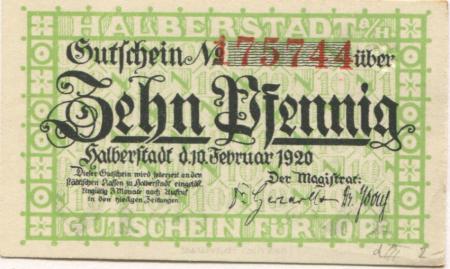 HALBERSTADT a/H.
Gutschein № 175744 über
Zehn Pfennig
Halberstadt d. 10. Februar 1920
Dieser Gutschein wird jederzeit an den
städtischen Kassen zu Halberstadt eingelöst.
Ungültig 3 Monate nach Aufruf
in den hiesigen Zeitungen.
Der Magistrat:
GUTSCHEIN FÜR 10 PF.